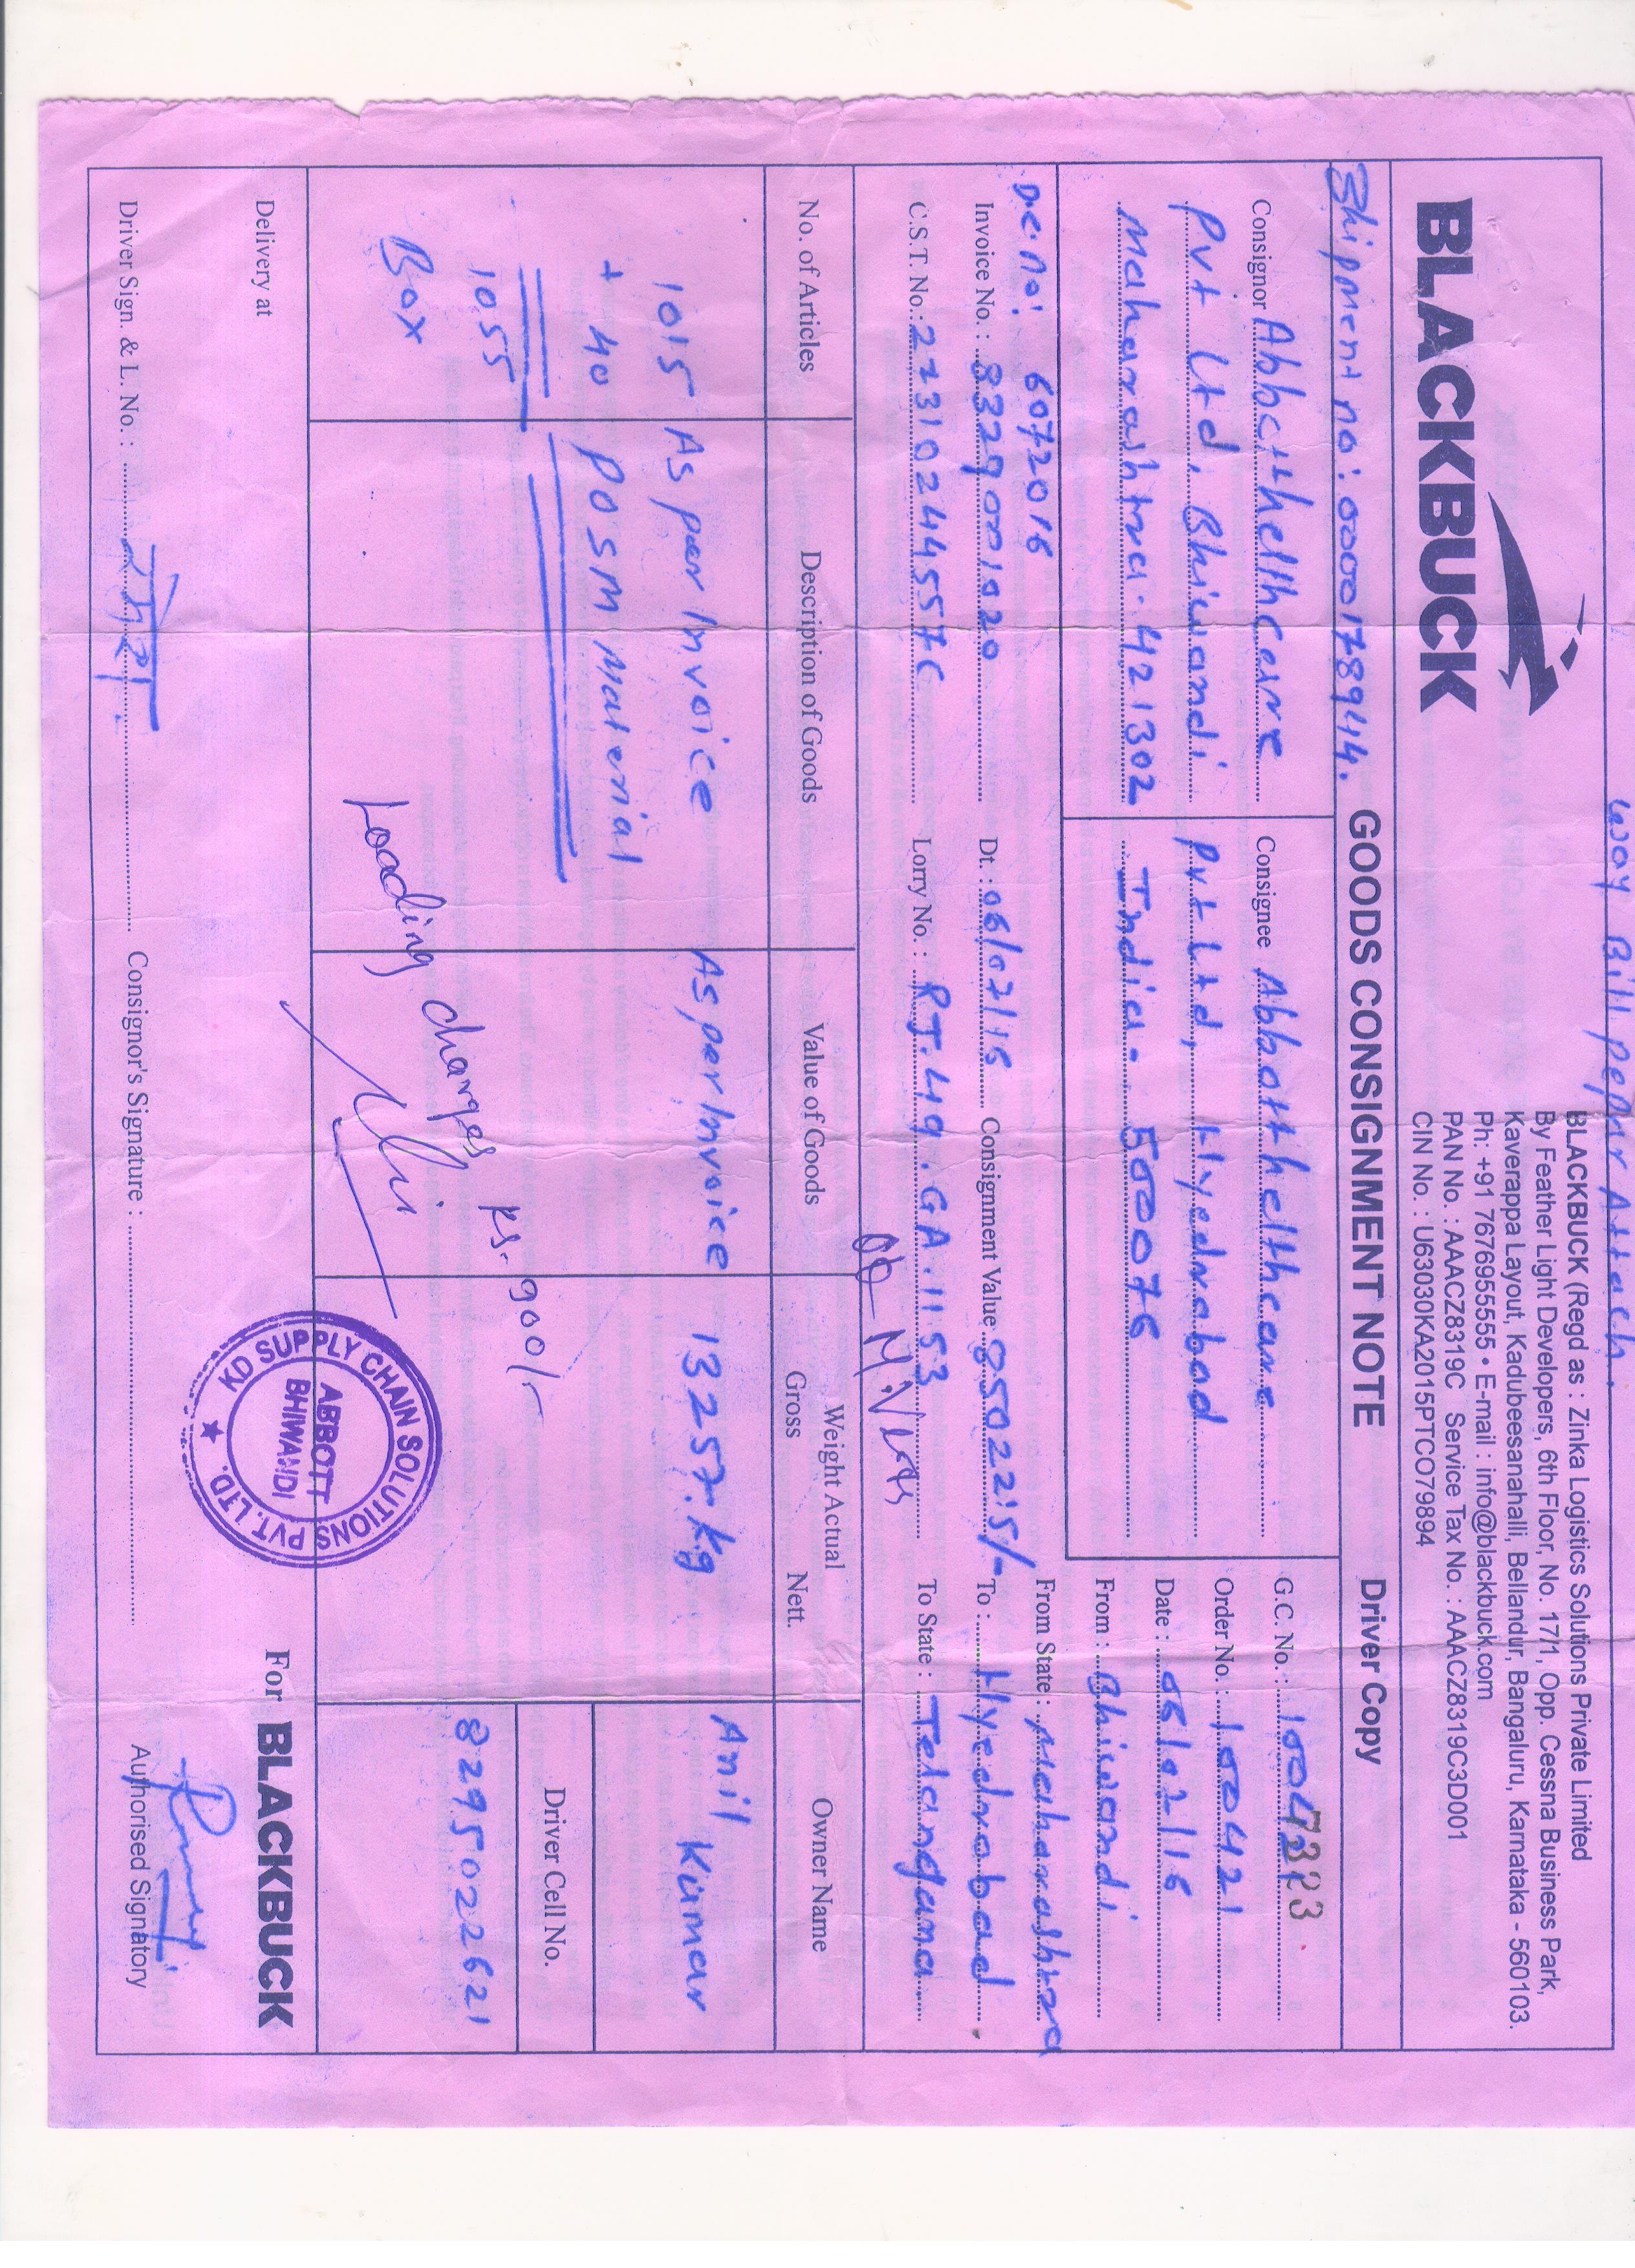 Way Bill pepar Attach.
BLACKBUCK
BLACKBUCK (Regd as : Zinka Logistics Solutions Private Limited
By Feather Light Developers, 6th Floor, No. 17/1, Opp. Cessna Business Park,
Kaverappa Layout, Kadubeesanahalli, Bellandur, Bangaluru, Karnataka - 560103.
Ph: +91 7676955555 • E-mail : info@blackbuck.com
PAN No. : AAACZ8319C Service Tax No. : AAACZ8319C3D001
CIN No. : U63030KA2015PTCO79894
Shipment no: 0000178944.
GOODS CONSIGNMENT NOTE
Driver Copy
Consignor Abbotthelthcare
Pvt Ltd, Bhiwandi
Maharashtra-421302
Consignee Abbotthelthcare
Pvt Ltd, Hyedrabad
India- 500076
G.C. No. : 100421 7323
Order No. : 100421
Date : 06/07/16
From : Bhiwandi
From State : Maharashtra
To : Hyedrabad
To State : Telangana
D.c. no: 6072016
Invoice No. : 8329001020
Dt. : 06/07/16
Consignment Value 850221.5/-
C.S.T. No.: 27310244557C
Lorry No. : RJ.49.GA.1153
No. of Articles
Description of Goods
Value of Goods
Weight Actual
Gross Nett.
Owner Name
1015 As per Invoice As per Invoice 13257.Kg Anil
Kumar
+ 40 POSM Material
1055
Box
Driver Cell No.
8295022621
Loading charges Rs. 900/-
KD SUPPLY CHAIN SOLUTIONS PVT. LTD.
ABBOTT
BHIWANDI
Delivery at
For BLACKBUCK
Driver Sign. & L. No. : रमेश
Consignor's Signature :
Authorised Signatory